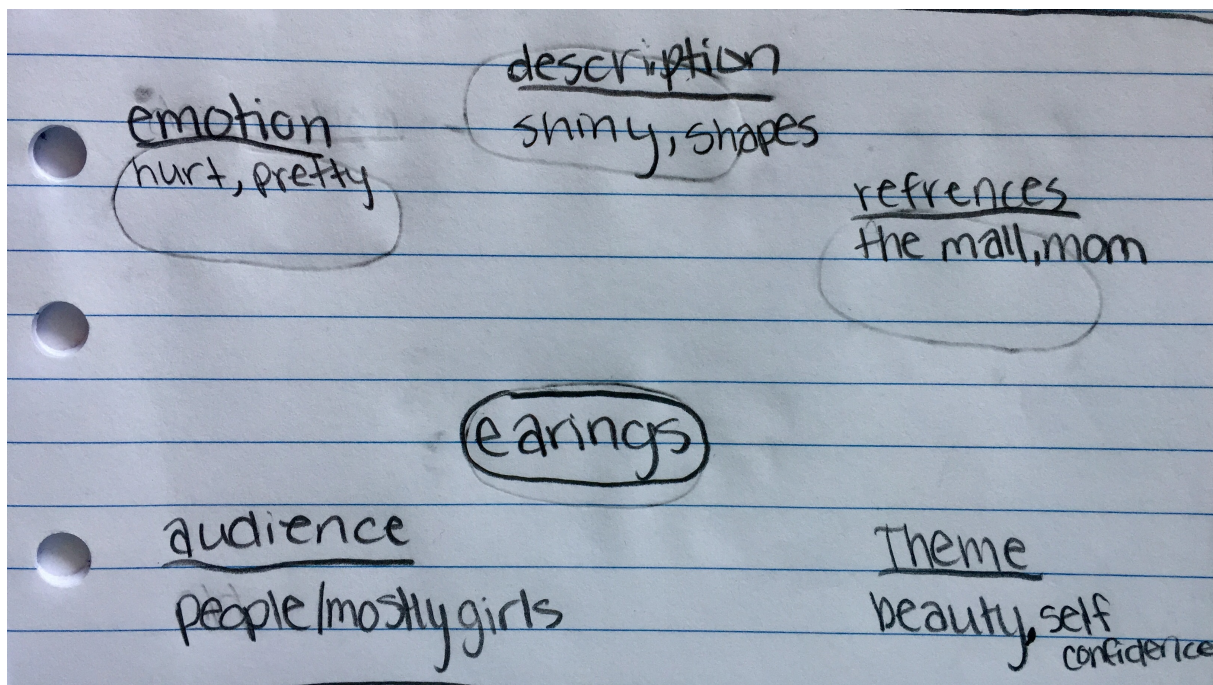 description
shiny, shapes
emotion
hurt, pretty
refrences
the mall, mom
earings
audience
people/mostly girls
Theme
beauty, self
confidence